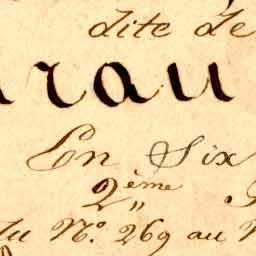 dite de
rau
En Six
2ème
du No. 269 au